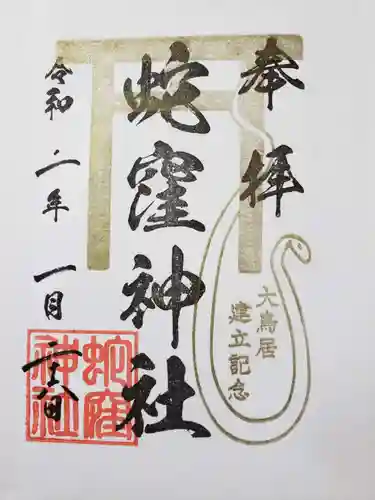 奉拝
大鳥居
建立記念
蛇窪神社
令和二年
一月
蛇窪
神社